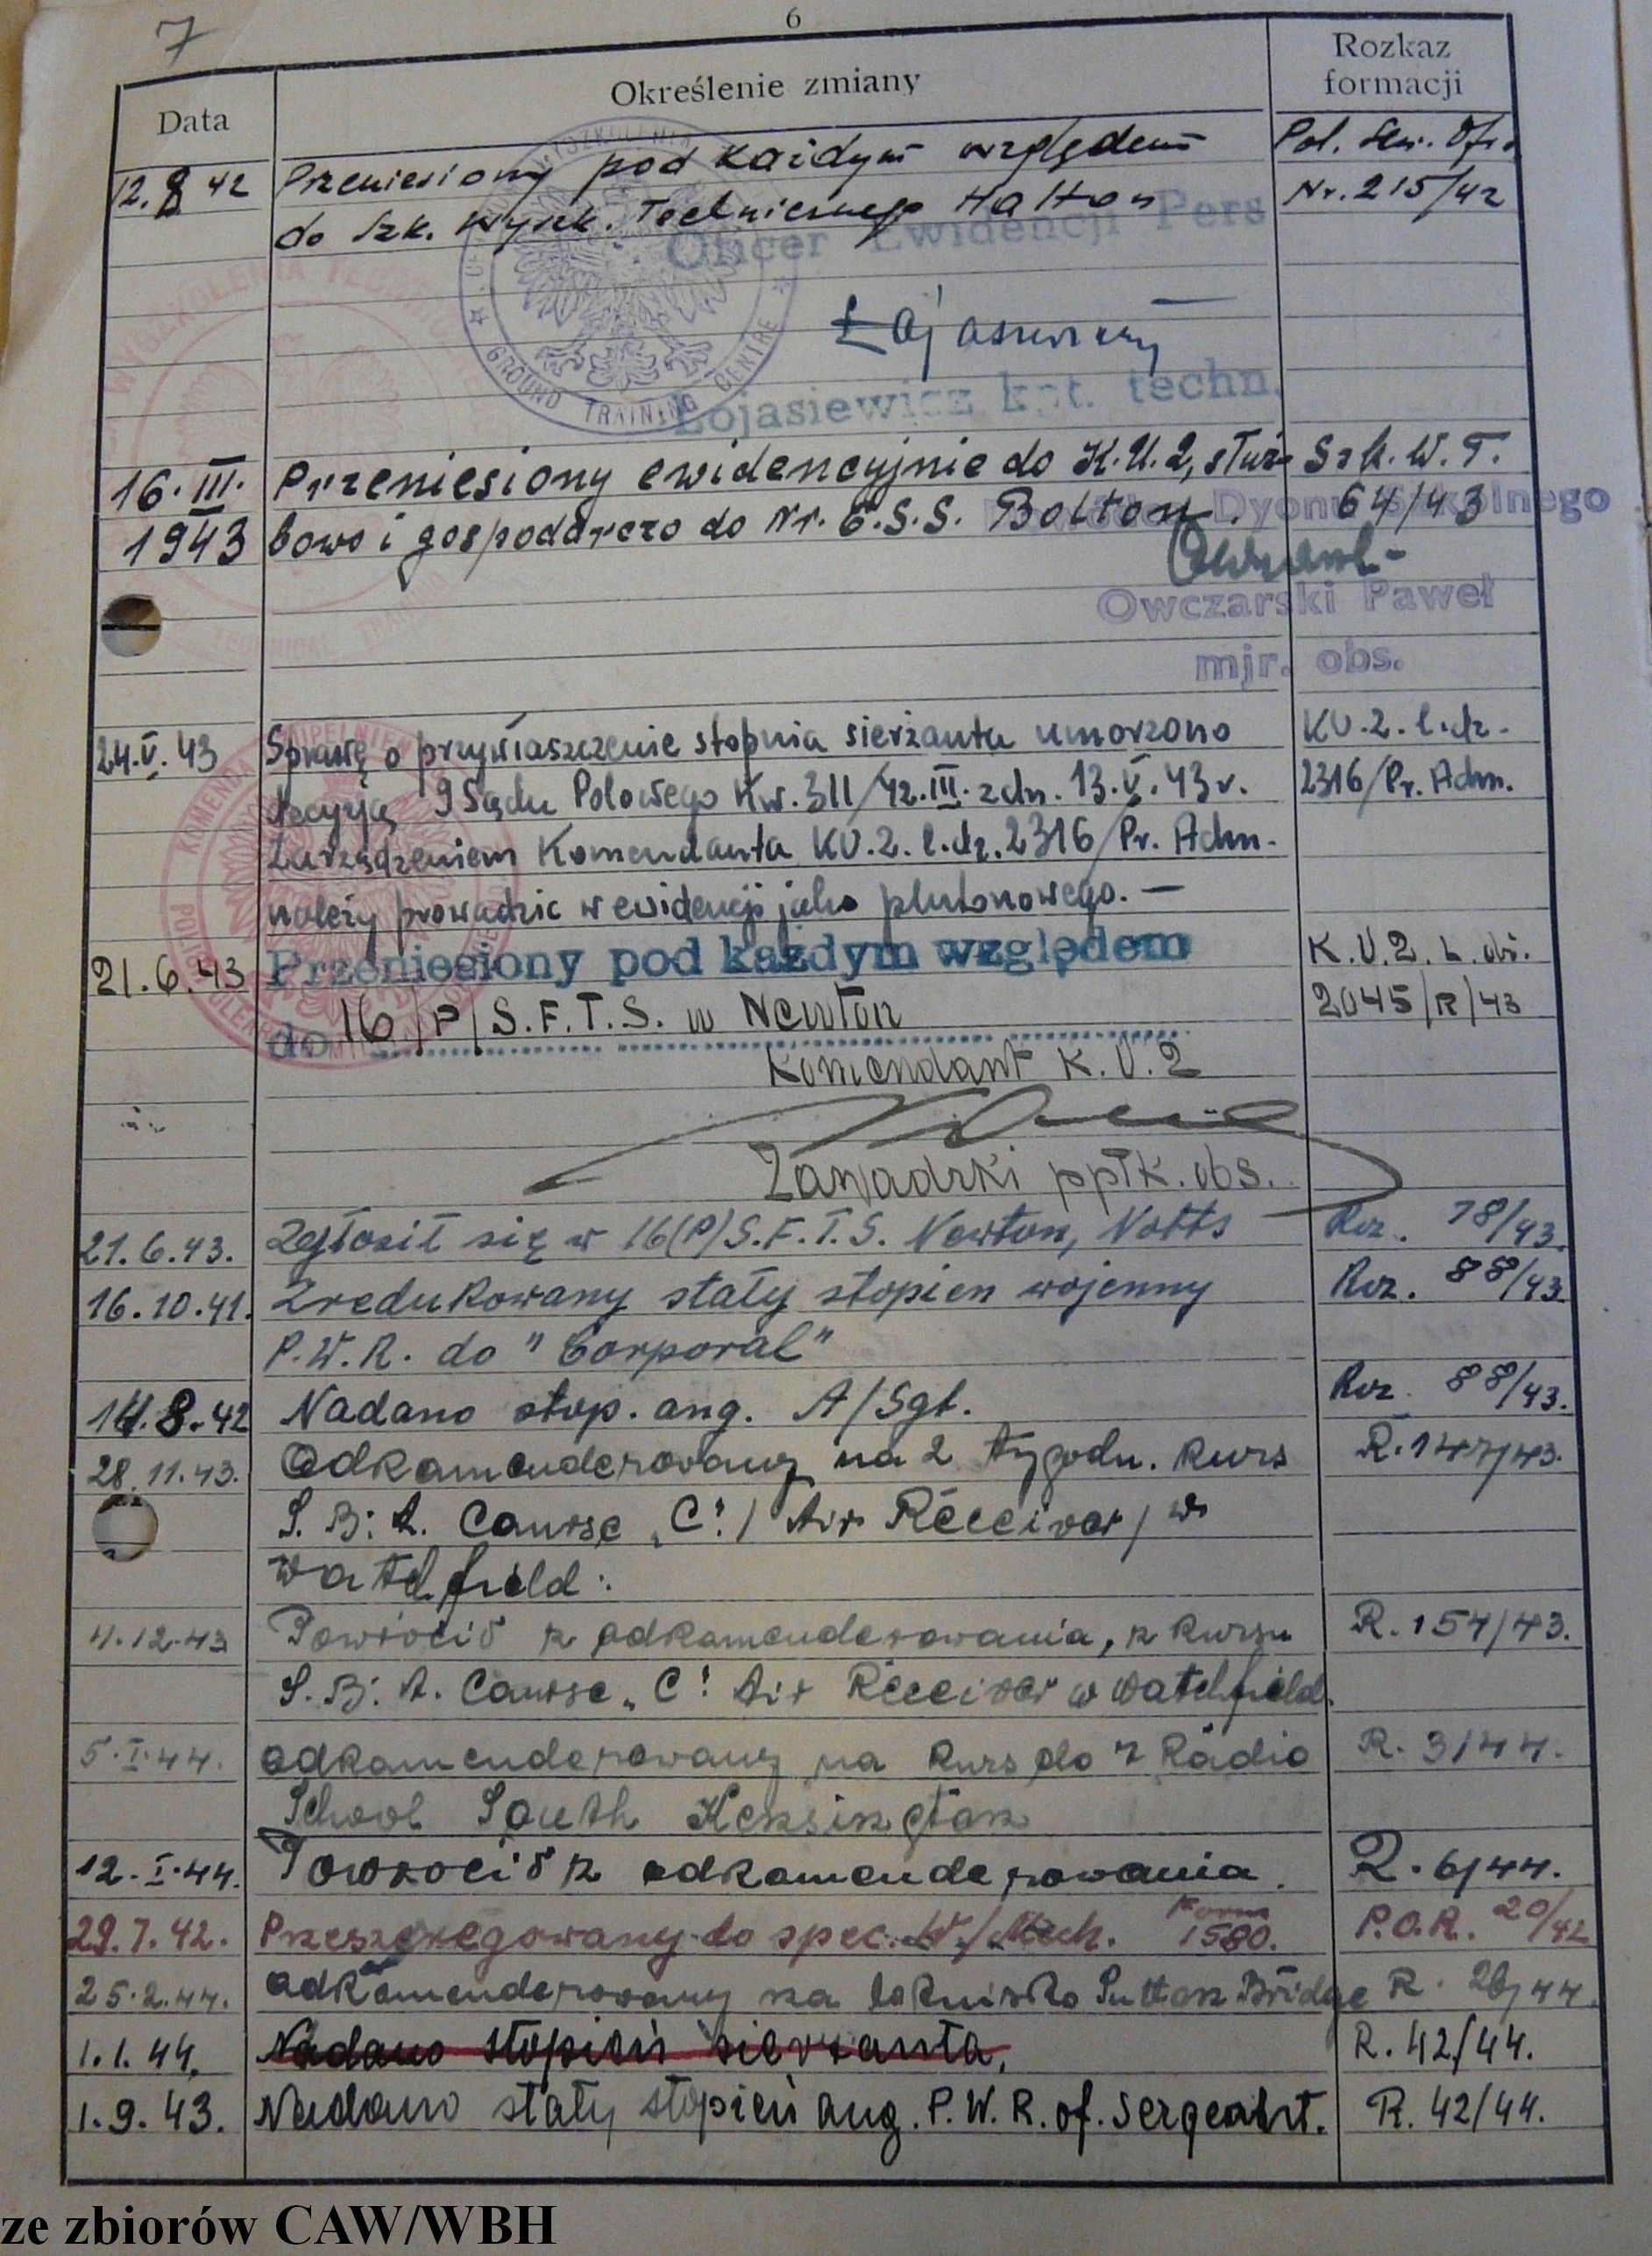 7
6
Data
Określenie zmiany
Rozkaz
formacji
12.8 42
Przeniesiony pod każdym względem
Pol.
do Szk. Wyszk. Technicznego Halton
Nr. 215/42
Oficer Ewidencji Pers
GROUND TRAINING CENTRE
Łojasiewicz kpt. techn.
16. III.
Przeniesiony ewidencyjnie do K.U.2, służ
Szk. W. T.
1943
bowo i gospodarczo do Nr. E.S.S. Bolton.
64/43
Dyonu Szkolnego
Owczarski Paweł
mjr. obs.
24.V.43
Sprawę o przywłaszczenie stopnia sierżanta umorzono
KU.2. l.dz.
decyzją 9 Sądu Polowego Kw. 311/42.III. z dn. 13.V.43 r.
2316/Pr. Adm.
Zarządzeniem Komendanta KU.2. l.dz. 2316/Pr. Adm.
należy prowadzić w ewidencji jako plutonowego. —
21.6.43
Przeniesiony pod każdym względem
K.U.2. L.dz.
do 16/P/S.F.T.S. w Newton
2045/R/43
Komendant K.U.2
Zawadzki ppłk. obs.
21.6.43.
Zgłosił się w 16(P)S.F.T.S. Newton, Notts
Roz. 78/43.
16.10.41.
Zredukowany stały stopien wojenny
Roz. 88/43.
P.W.R. do "Corporal"
14.8.42
Nadano stop. ang. A/Sgt.
Roz 88/43.
28.11.43.
Odkomenderowany na 2 tygodn. kurs
R.147/43.
S.B.A. Course „C" / Air Receiver/ w
Watchfield.
4.12.43
Powrócił z odkomenderowania, z kursu
R.154/43.
S.B.A. Course „C" Air Receiver w Watchfield.
5.I.44.
odkomenderowany na kurs do 7 Radio
R.3/44.
School South Kensington
12.I.44.
Powrócił z odkomenderowania.
R.6/44.
29.7.42.
Przeszeregowany do spec. W./Mech. Form 1580.
P.O.R. 20/42
25.2.44.
odkomenderowany na lotnisko Sutton Bridge
R. 26/44.
1.1.44.
Nadano stopień sierżanta.
R.42/44.
1.9.43.
Nadano stały stopień ang. P.W.R. of. Sergeant.
R.42/44.
ze zbiorów CAW/WBH